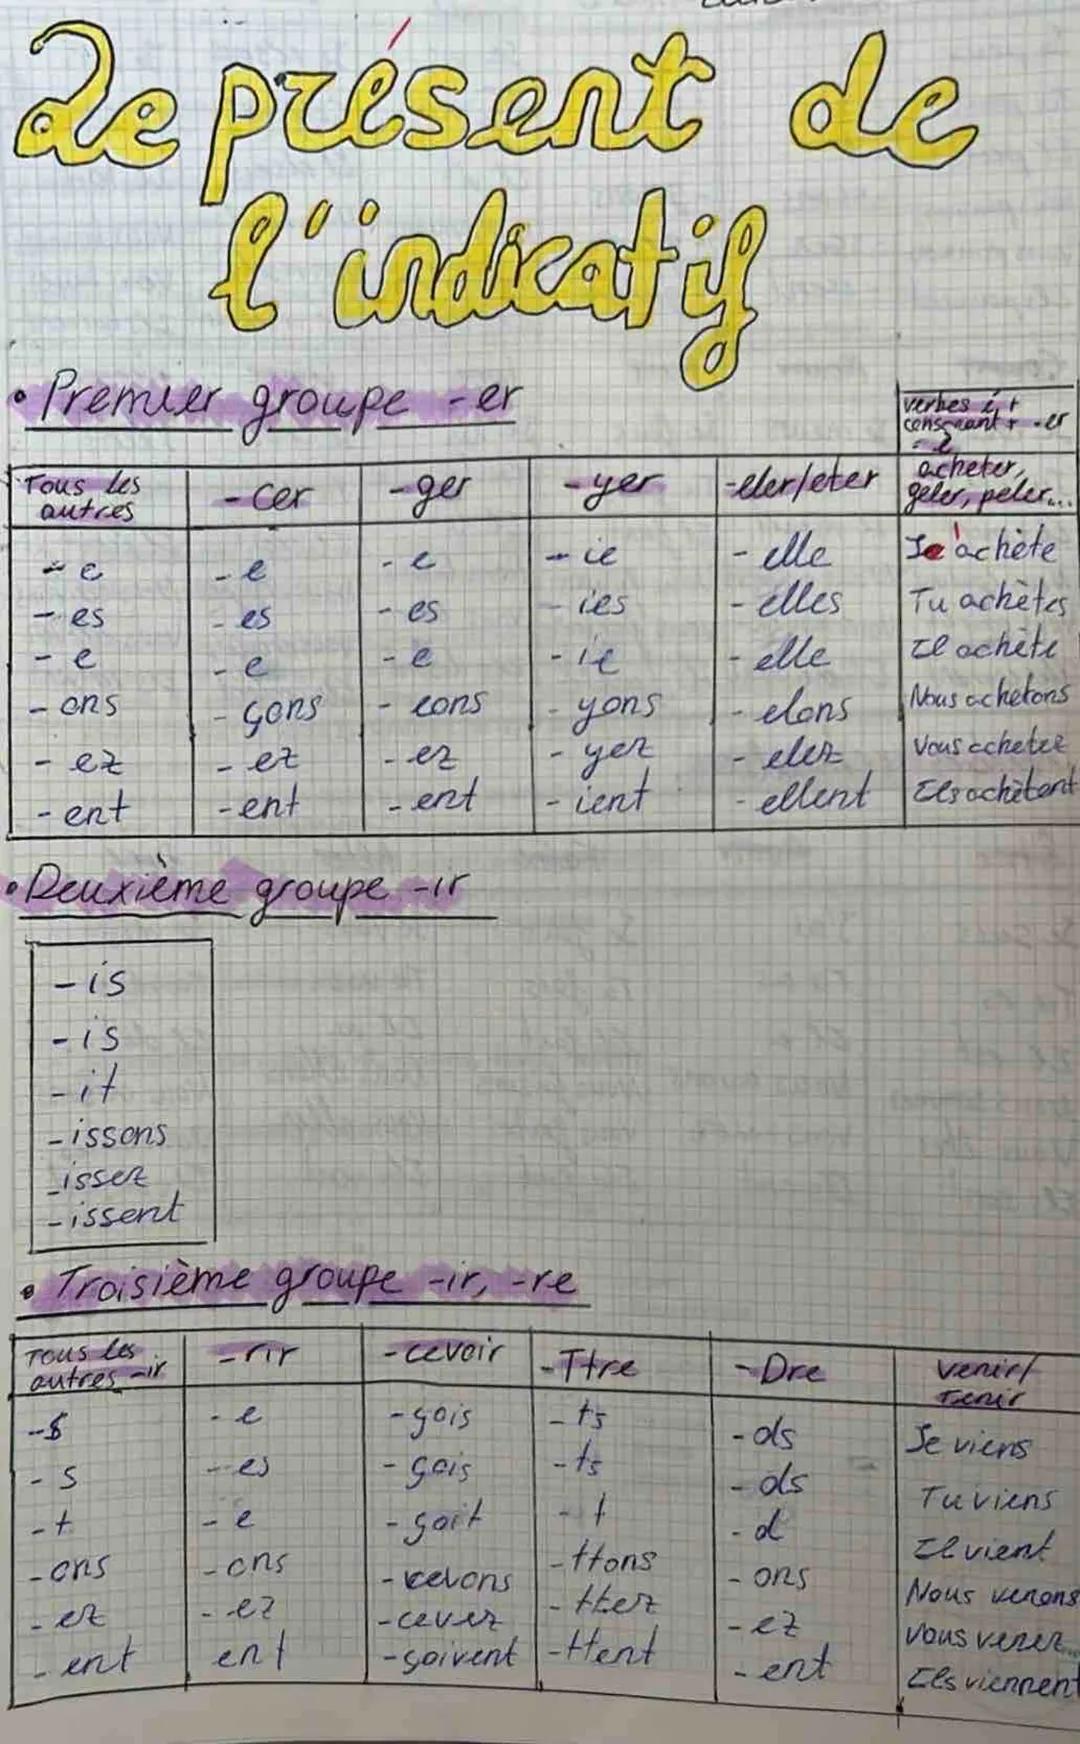 Le présent de
l'indicatif
• Premier groupe -er
verbes é +
consonant + -er
= è
Tous les autres | -cer | -ger | -yer | -eler/eter | acheter, geler, peler...
- e | - e | - e | - ie | - elle | Je'achète
- es | - es | - es | - ies | - elles | Tu achètes
- e | - e | - e | - ie | - elle | Il achète
- ons | - çons | - eons | - yons | - elons | Nous achetons
- ez | - ez | - ez | - yez | - elez | Vous achetez
- ent | - ent | - ent | - ient | - ellent | Ils achètent
• Deuxième groupe -ir
- is
- is
- it
- issons
- issez
- issent
• Troisième groupe -ir, -re
Tous les autres -ir | - rir | - cevoir | - Ttre | - Dre | venir/ Tenir
- s | - e | - çois | - ts | - ds | Je viens
- s | - es | - çois | - ts | - ds | Tu viens
- t | - e | - çoit | - t | - d | Il vient
- ons | - ons | - cevons | - ttons | - ons | Nous venons
- ez | - ez | - cevez | - ttez | - ez | Vous venez
- ent | ent | - çoivent | - ttent | - ent | Ils viennent